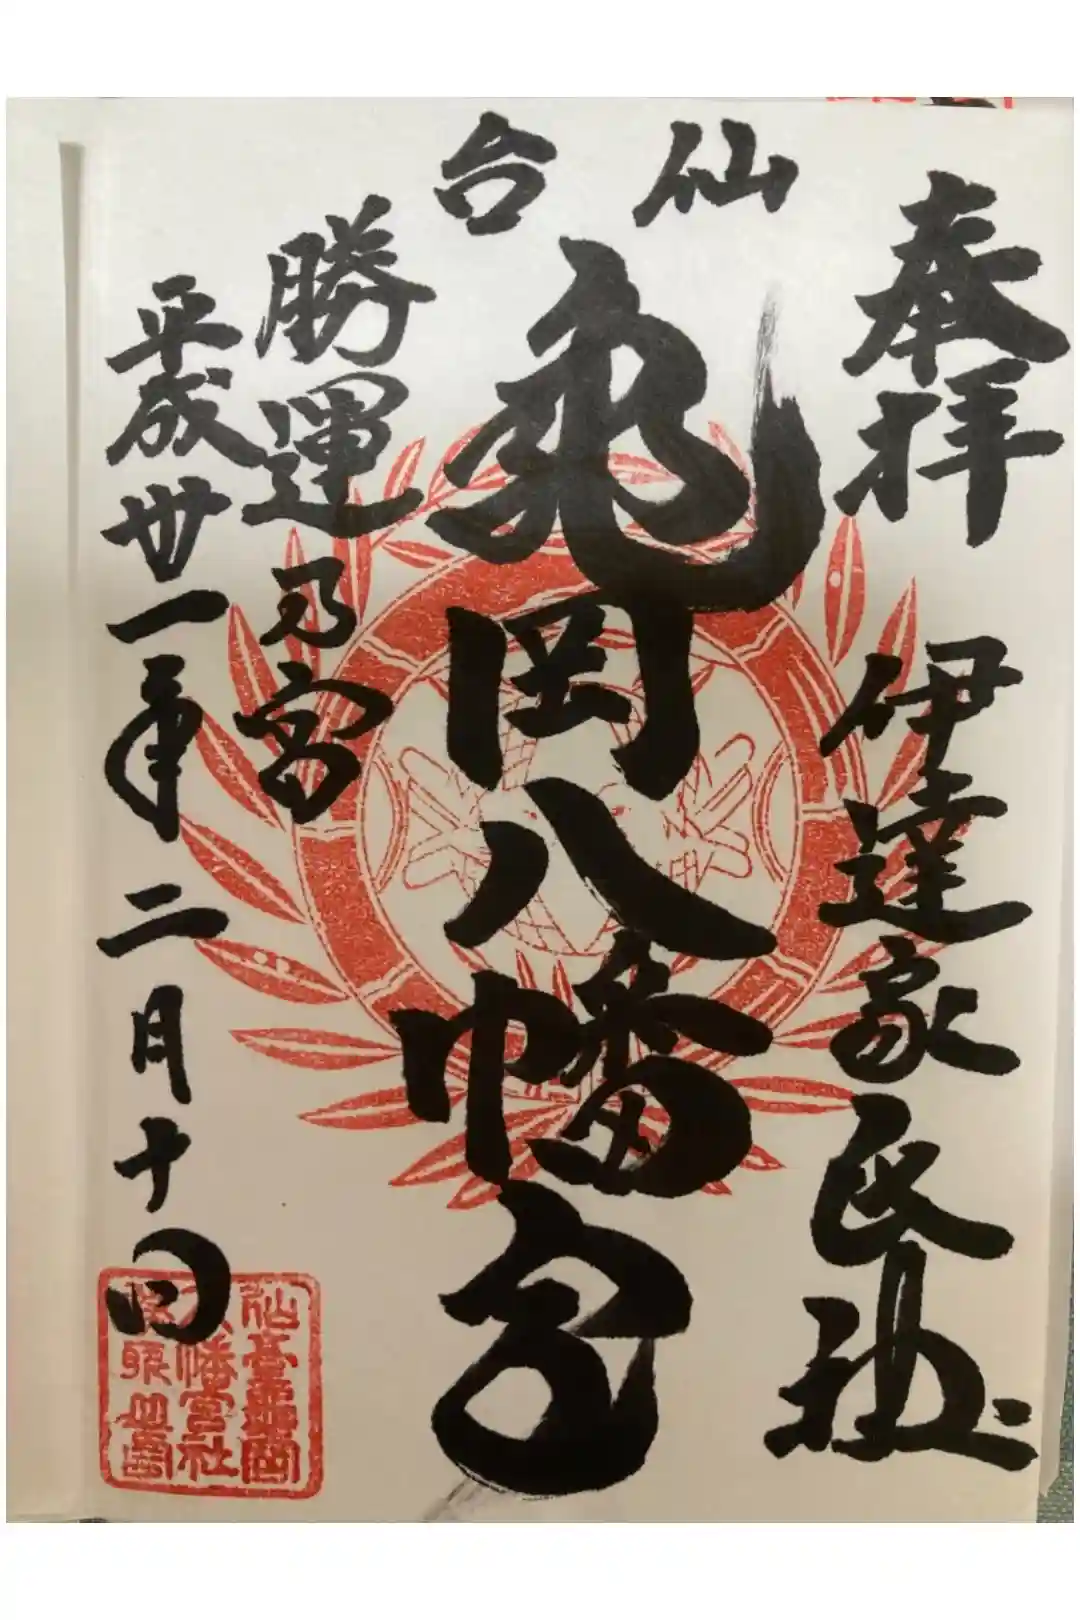 奉拝
伊達家氏社
仙台
亀岡八幡宮
勝運乃宮
平成卅一年二月十日
仙臺龜岡
八幡宮社